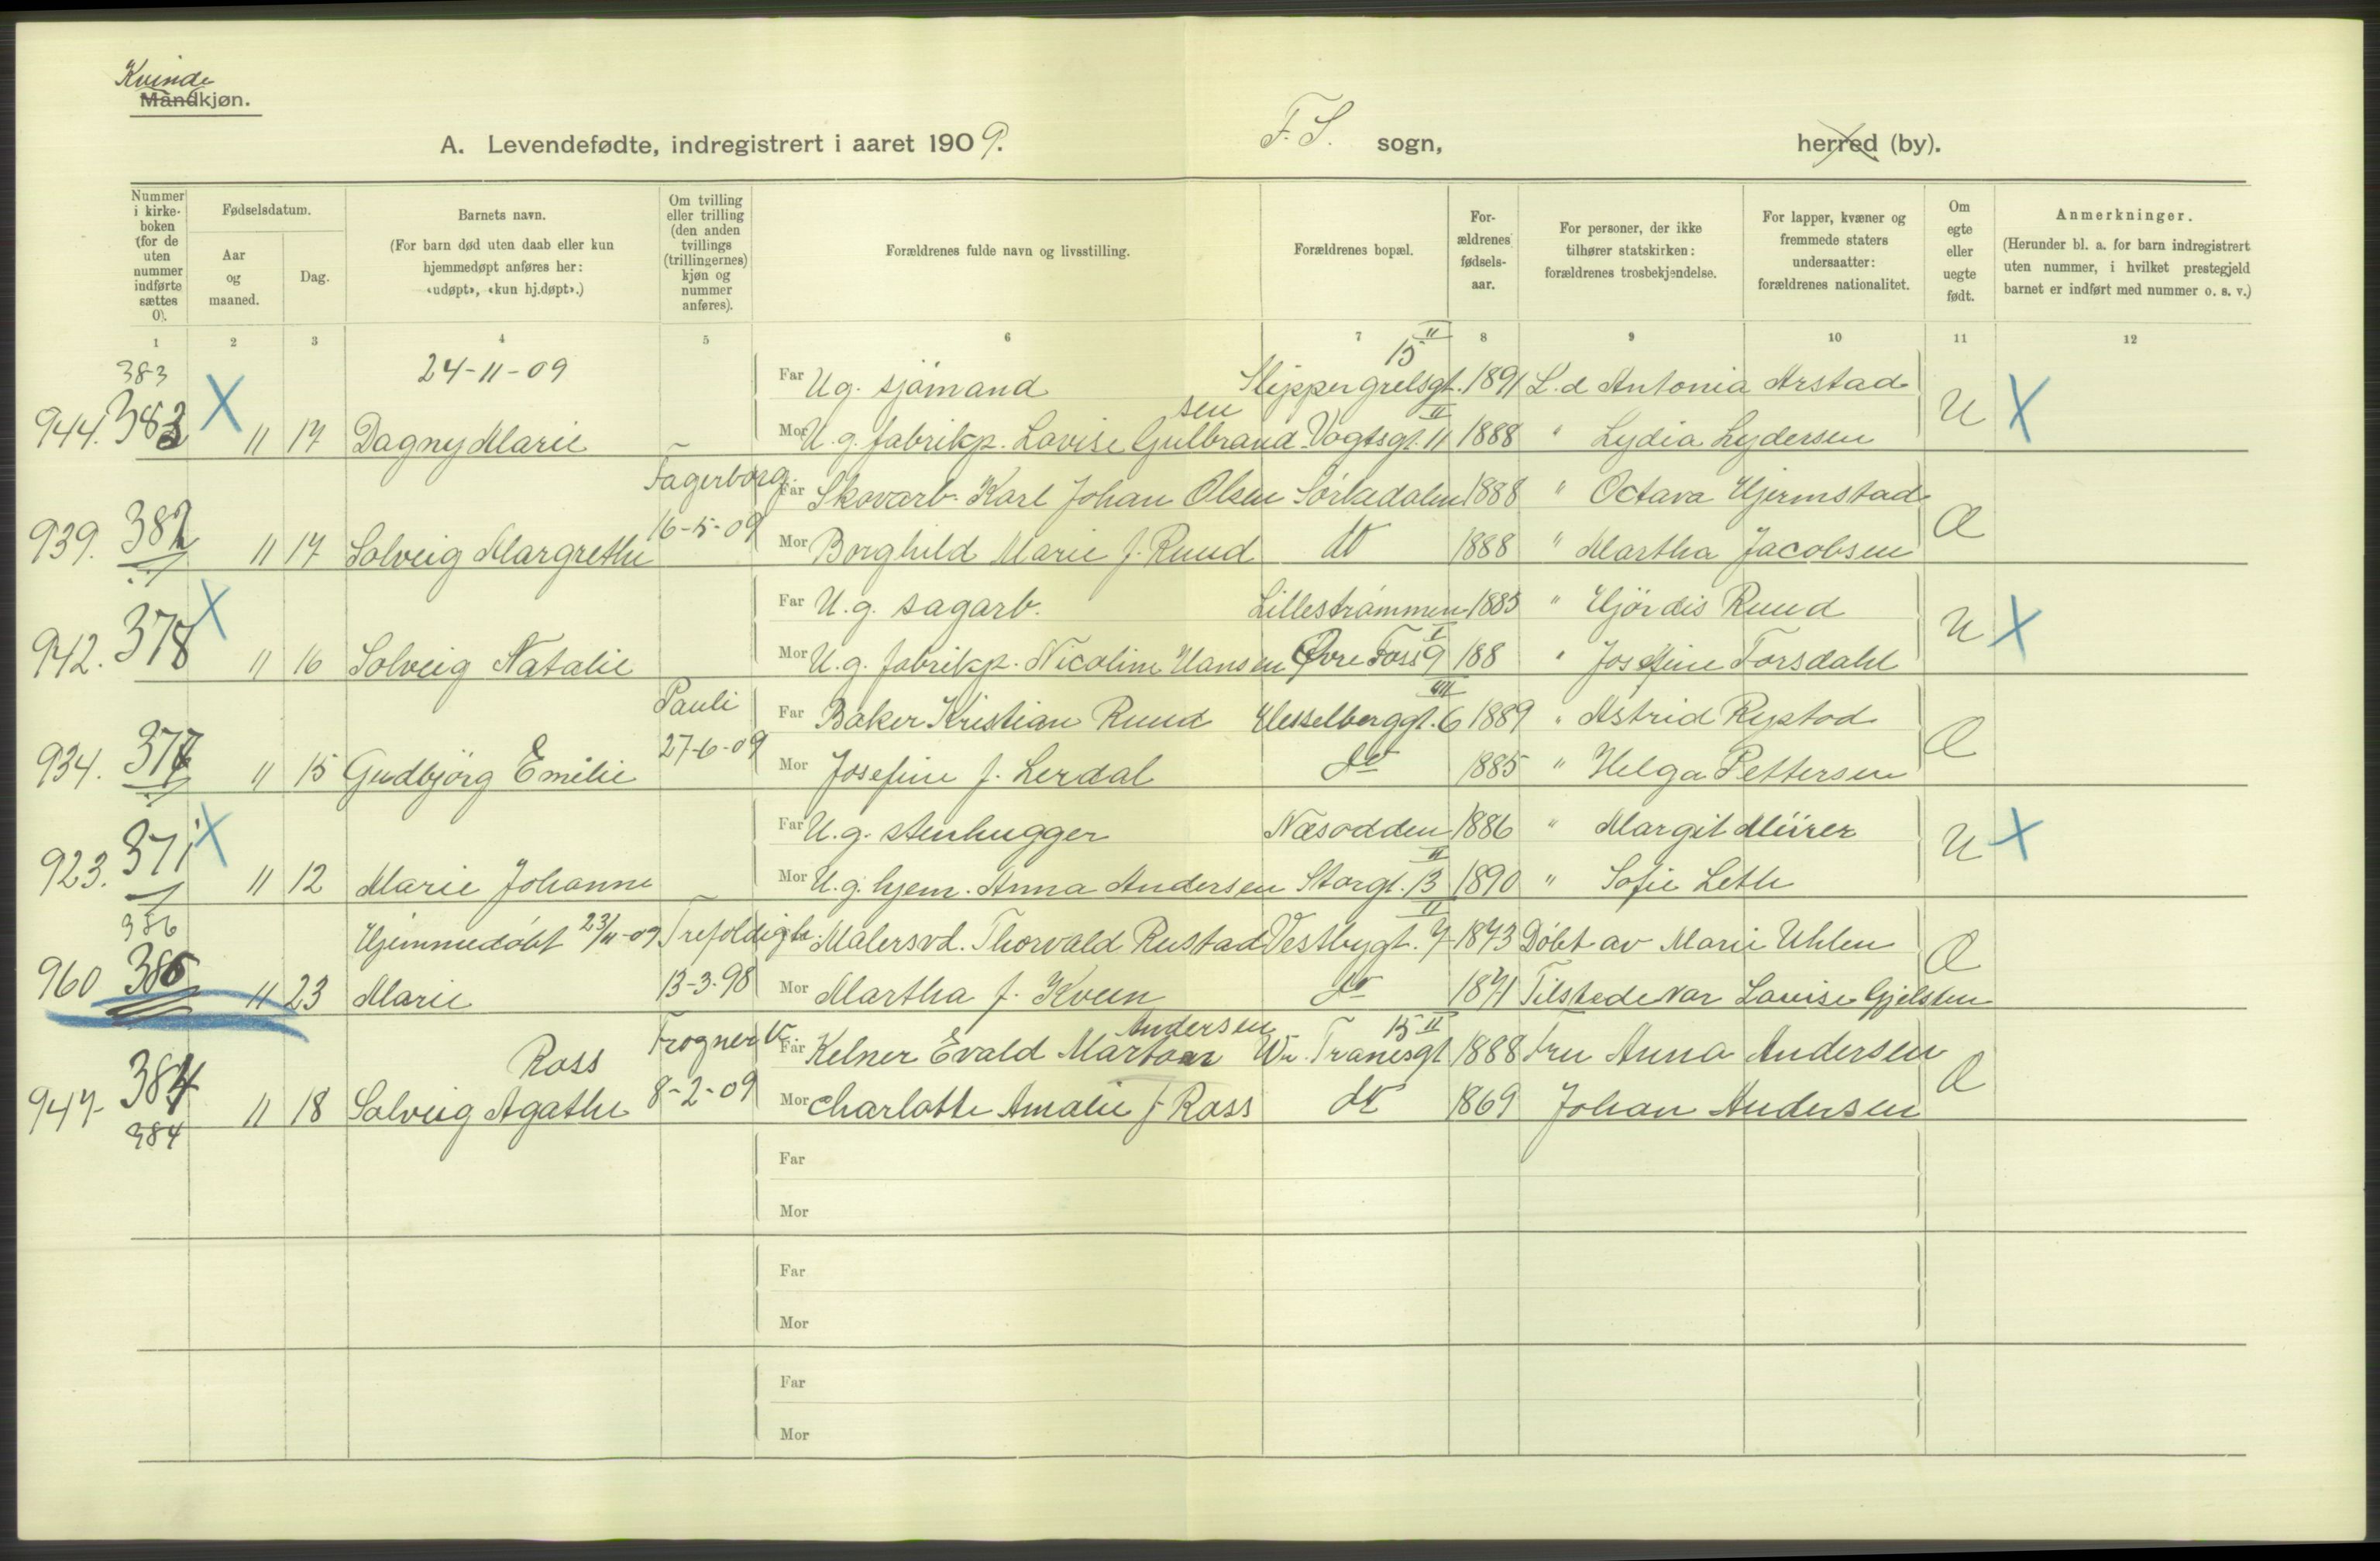 Kvinde
Mandkjøn.
A. Levendefødte, indregistrert i aaret 1909. F. S. sogn, herred (by).
Nummer i kirke-boken (for de uten nummer indførte sættes 0).
Fødselsdatum.
Aar og maaned.
Dag.
Barnets navn.
(For barn død uten daab eller kun hjemmedøpt anføres her: «udøpt», «kun hj.døpt».)
Om tvilling eller trilling (den anden tvillings (trillingernes) kjøn og nummer anføres).
Forældrenes fulde navn og livsstilling.
Forældrenes bopæl.
For-ældrenes fødsels-aar.
For personer, der ikke tilhører statskirken: forældrenes trosbekjendelse.
For lapper, kvæner og fremmede staters undersaatter: forældrenes nationalitet.
Om egte eller uegte født.
Anmerkninger.
(Herunder bl. a. for barn indregistrert uten nummer, i hvilket prestegjeld barnet er indført med nummer o. s. v.)
1 2 3 4 5 6 7 8 9 10 11 12
383 24-11-09 Far Ug. sjømand 15 II 1891 L.d Antonia Arstad
944. 383 X 11 17 Dagny Marie – Mor U.g. fabrikp. Lovise Gulbrandsen Vogtsgt. 11 II 1888 " Lydia Lydersen U X
Fagerborg Far Skovarb. Karl Johan Olsen Sørkedalen 1888 " Octava Hjermstad
939. 382 11 17 Solveig Margrethe 16-5-09 Mor Borghild Marie f. Ruud do 1888 " Martha Jacobsen Æ
X Far U.g. sagarb. Lillestrømmen 1885 " Hjørdis Ruud
942. 378 11 16 Solveig Natalie Mor U.g. fabrikp. Nicoline Hansen Øvre Foss 9 I 188 " Josefine Forsdahl U X
Pauli Far Baker Kristian Ruud Hesselberggt. 6 III 1889 " Astrid Rystad
934. 377 11 15 Gudbjörg Emilie 27-6-09 Mor Josefine f. Lerdal do 1885 " Helga Pettersen Æ
X Far U.g. stenhugger Næsodden 1886 " Margit Mürer
923. 371 11 12 Marie Johanne Mor U.g. hjem. Anna Andersen Storgt. 13 II 1890 " Sofie Leth U X
386 Hjemmedøbt 23/11-09 Trefoldigh. Malersvd. Thorvald Rustad Vestbygt. 7 II 1873 Døbt av Marie Uhlen
960 386 11 23 Marie 13-3-98 Mor Martha f. Kveen do 1871 Tilstede var Lovise Gjelsten Æ
Frogner V. Far Kelner Evald Marton Andersen W. Tranesgt 15 II 1888 Fru Anna Andersen
947. 384 11 18 Solveig Agathe Ross 8-2-09 Mor Charlotte Amalie f. Ross do 1869 Johan Andersen Æ
384
Far
Mor
Far
Mor
Far
Mor